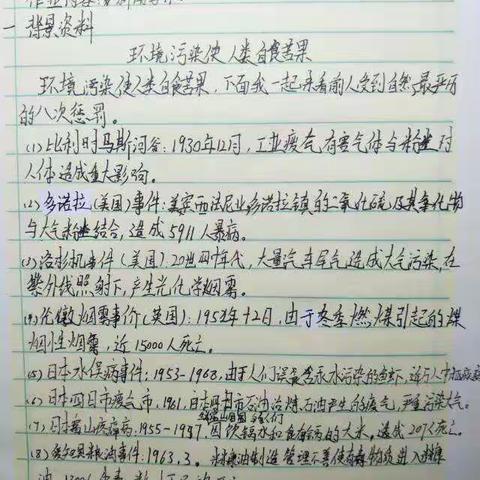 作业内容
一 背景资料
环境污染使人类自食苦果
环境污染使人类自食苦果,下面我一起来看前人受到自然最严厉
的八次惩罚。
(1)比利时马斯河谷:1930年12月,工业废气有害气体与粉尘对
人体造成重大影响。
(2)多诺拉(美国)事件:美宾西法尼亚多诺拉镇的二氧化硫及其氧化物
与大气粉尘结合,造成5911人暴病。
(3)洛杉机事件(美国)20世四十年代,大量汽车尾气造成大气污染,在
紫外线照射下,产生光化学烟雾。
(4)伦敦烟雾事件(英国):1952年12月,由于冬季燃煤引起的煤
烟性烟雾,近15000人死亡。
(5)日本水俣病事件:1953-1968,由于人们误食含汞水污染的鱼虾,近
(6)日本四日市废气市,1961,日本四日市石油冶炼、石油产生的废气,严重污染大气。
(7)日本富山疾病病:1955-1977,因饮镉水和食有病的大米,造成207人死亡。
(8)米糠油事件:1963.3.米糠油制造管理不善使有毒物质进入米糠
油